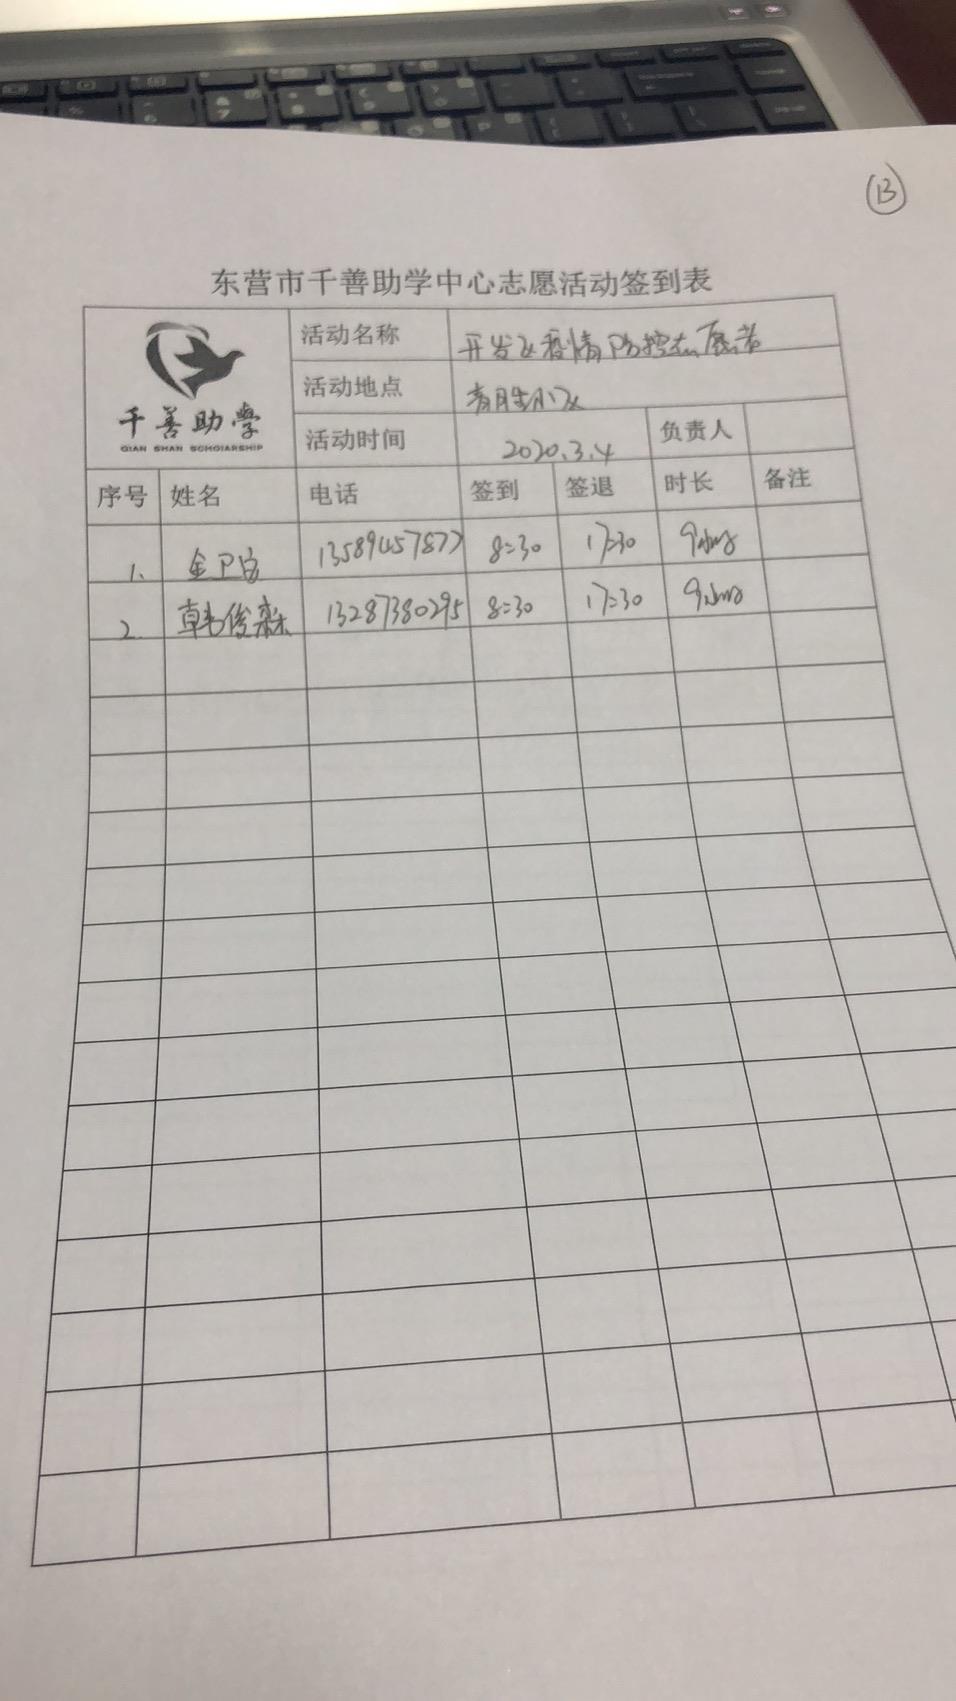 13
东营市千善助学中心志愿活动签到表
千善助学
QIAN SHAN SCHOLARSHIP
活动名称 开发区疫情防控志愿者
活动地点 小区
活动时间 2020.3.4 负责人
序号 姓名 电话 签到 签退 时长 备注
1. 金卫 13589457877 8:30 17:30
2 韩俊 13287380295 8:30 17:30